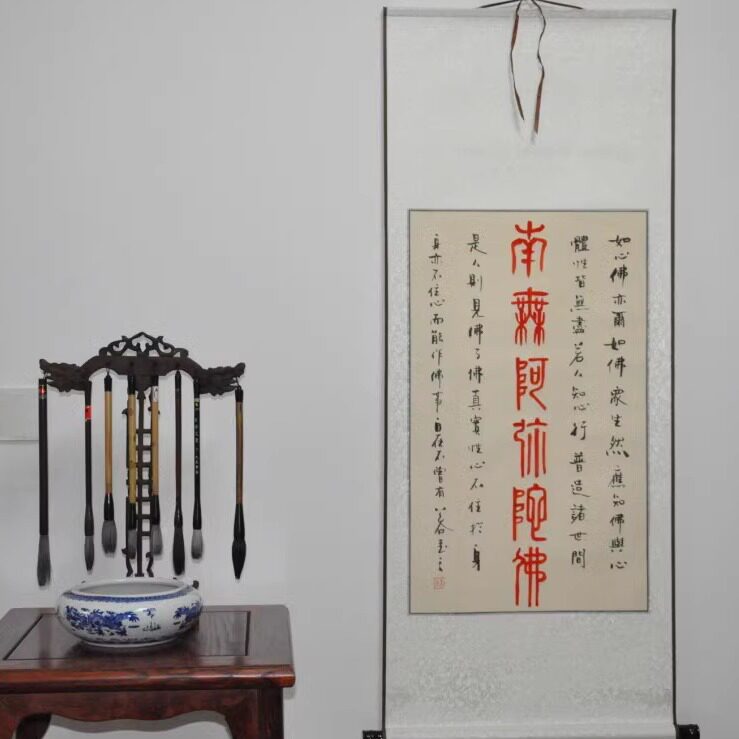 如心佛亦爾如佛衆生然應知佛與心
體性皆無盡若人知心行普造諸世間
南無阿弥陀佛
是人則見佛了佛真實性心不住於身
身亦不住心而能作佛事自在未曾有